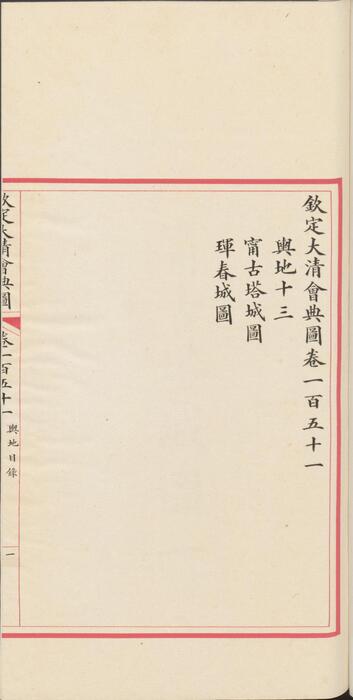 欽定大清會典圖卷一百五十一
輿地十三
甯古塔城圖
琿春城圖
欽定大清會典圖
卷一百五十一
輿地目錄
一